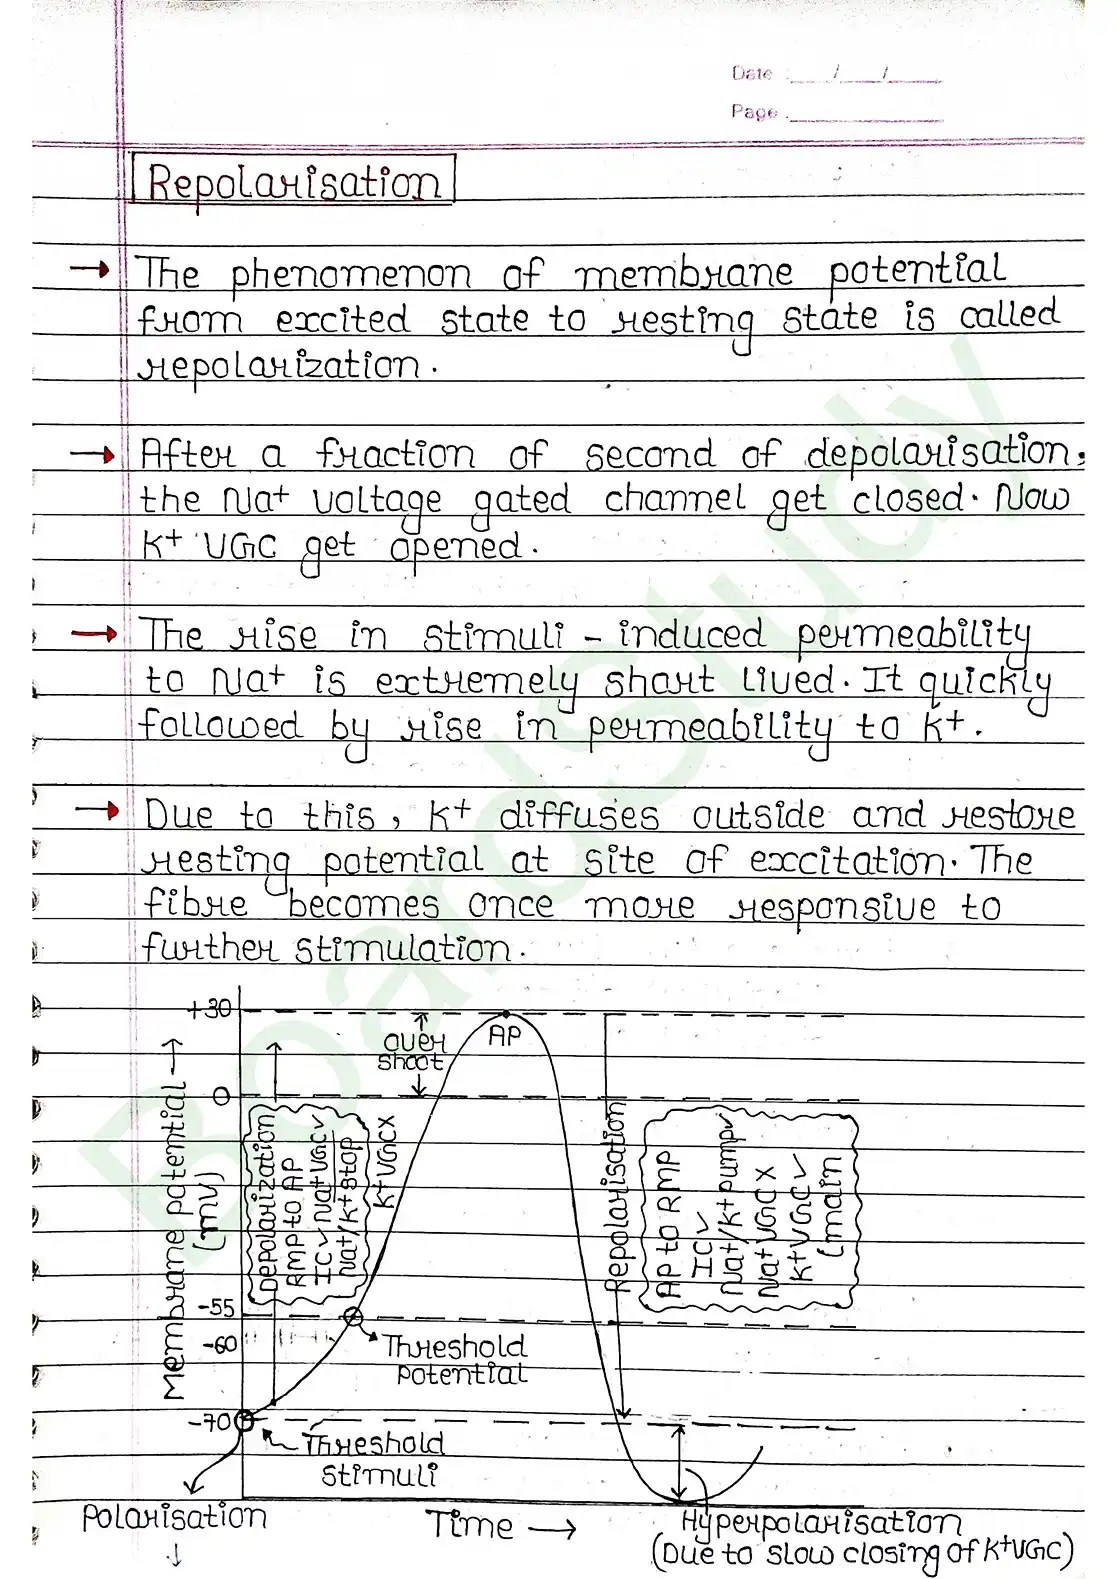 Date : / /
Page
Repolarisation
→ The phenomenon of membrane potential
from excited state to resting state is called
repolarization.
→ After a fraction of second of depolarisation,
the Na+ voltage gated channel get closed. Now
K+ VGC get opened.
→ The rise in stimuli - induced permeability
to Na+ is extremely short lived. It quickly
followed by rise in permeability to K+.
→ Due to this, K+ diffuses outside and restore
resting potential at site of excitation. The
fibre becomes once more responsive to
further stimulation.
+30
AP
over
shoot
0
Membrane potential →
(mv)
Depolarization
RMP to AP
IC✓ Na+VGC✓
Na+/K+ stop
K+VGCX
Repolarisation
AP to RMP
IC✓
Na+/K+ pump✓
Na+VGCX
K+VGC✓
(main
-55
-60
Threshold
potential
-70
Threshold
stimuli
Polarisation
↓
Time →
Hyperpolarisation
(Due to slow closing of K+VGC)
BoardStudy